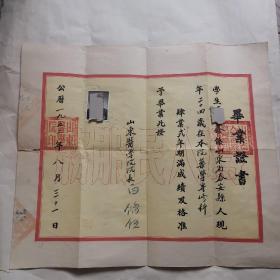 畢業證書
學生 係山東省泰安縣人現
年二十四歲在本院藥學專修科
修業弍年期滿成績及格准
予畢業此證
山東醫學院院長
公曆一九五三年八月三十一日